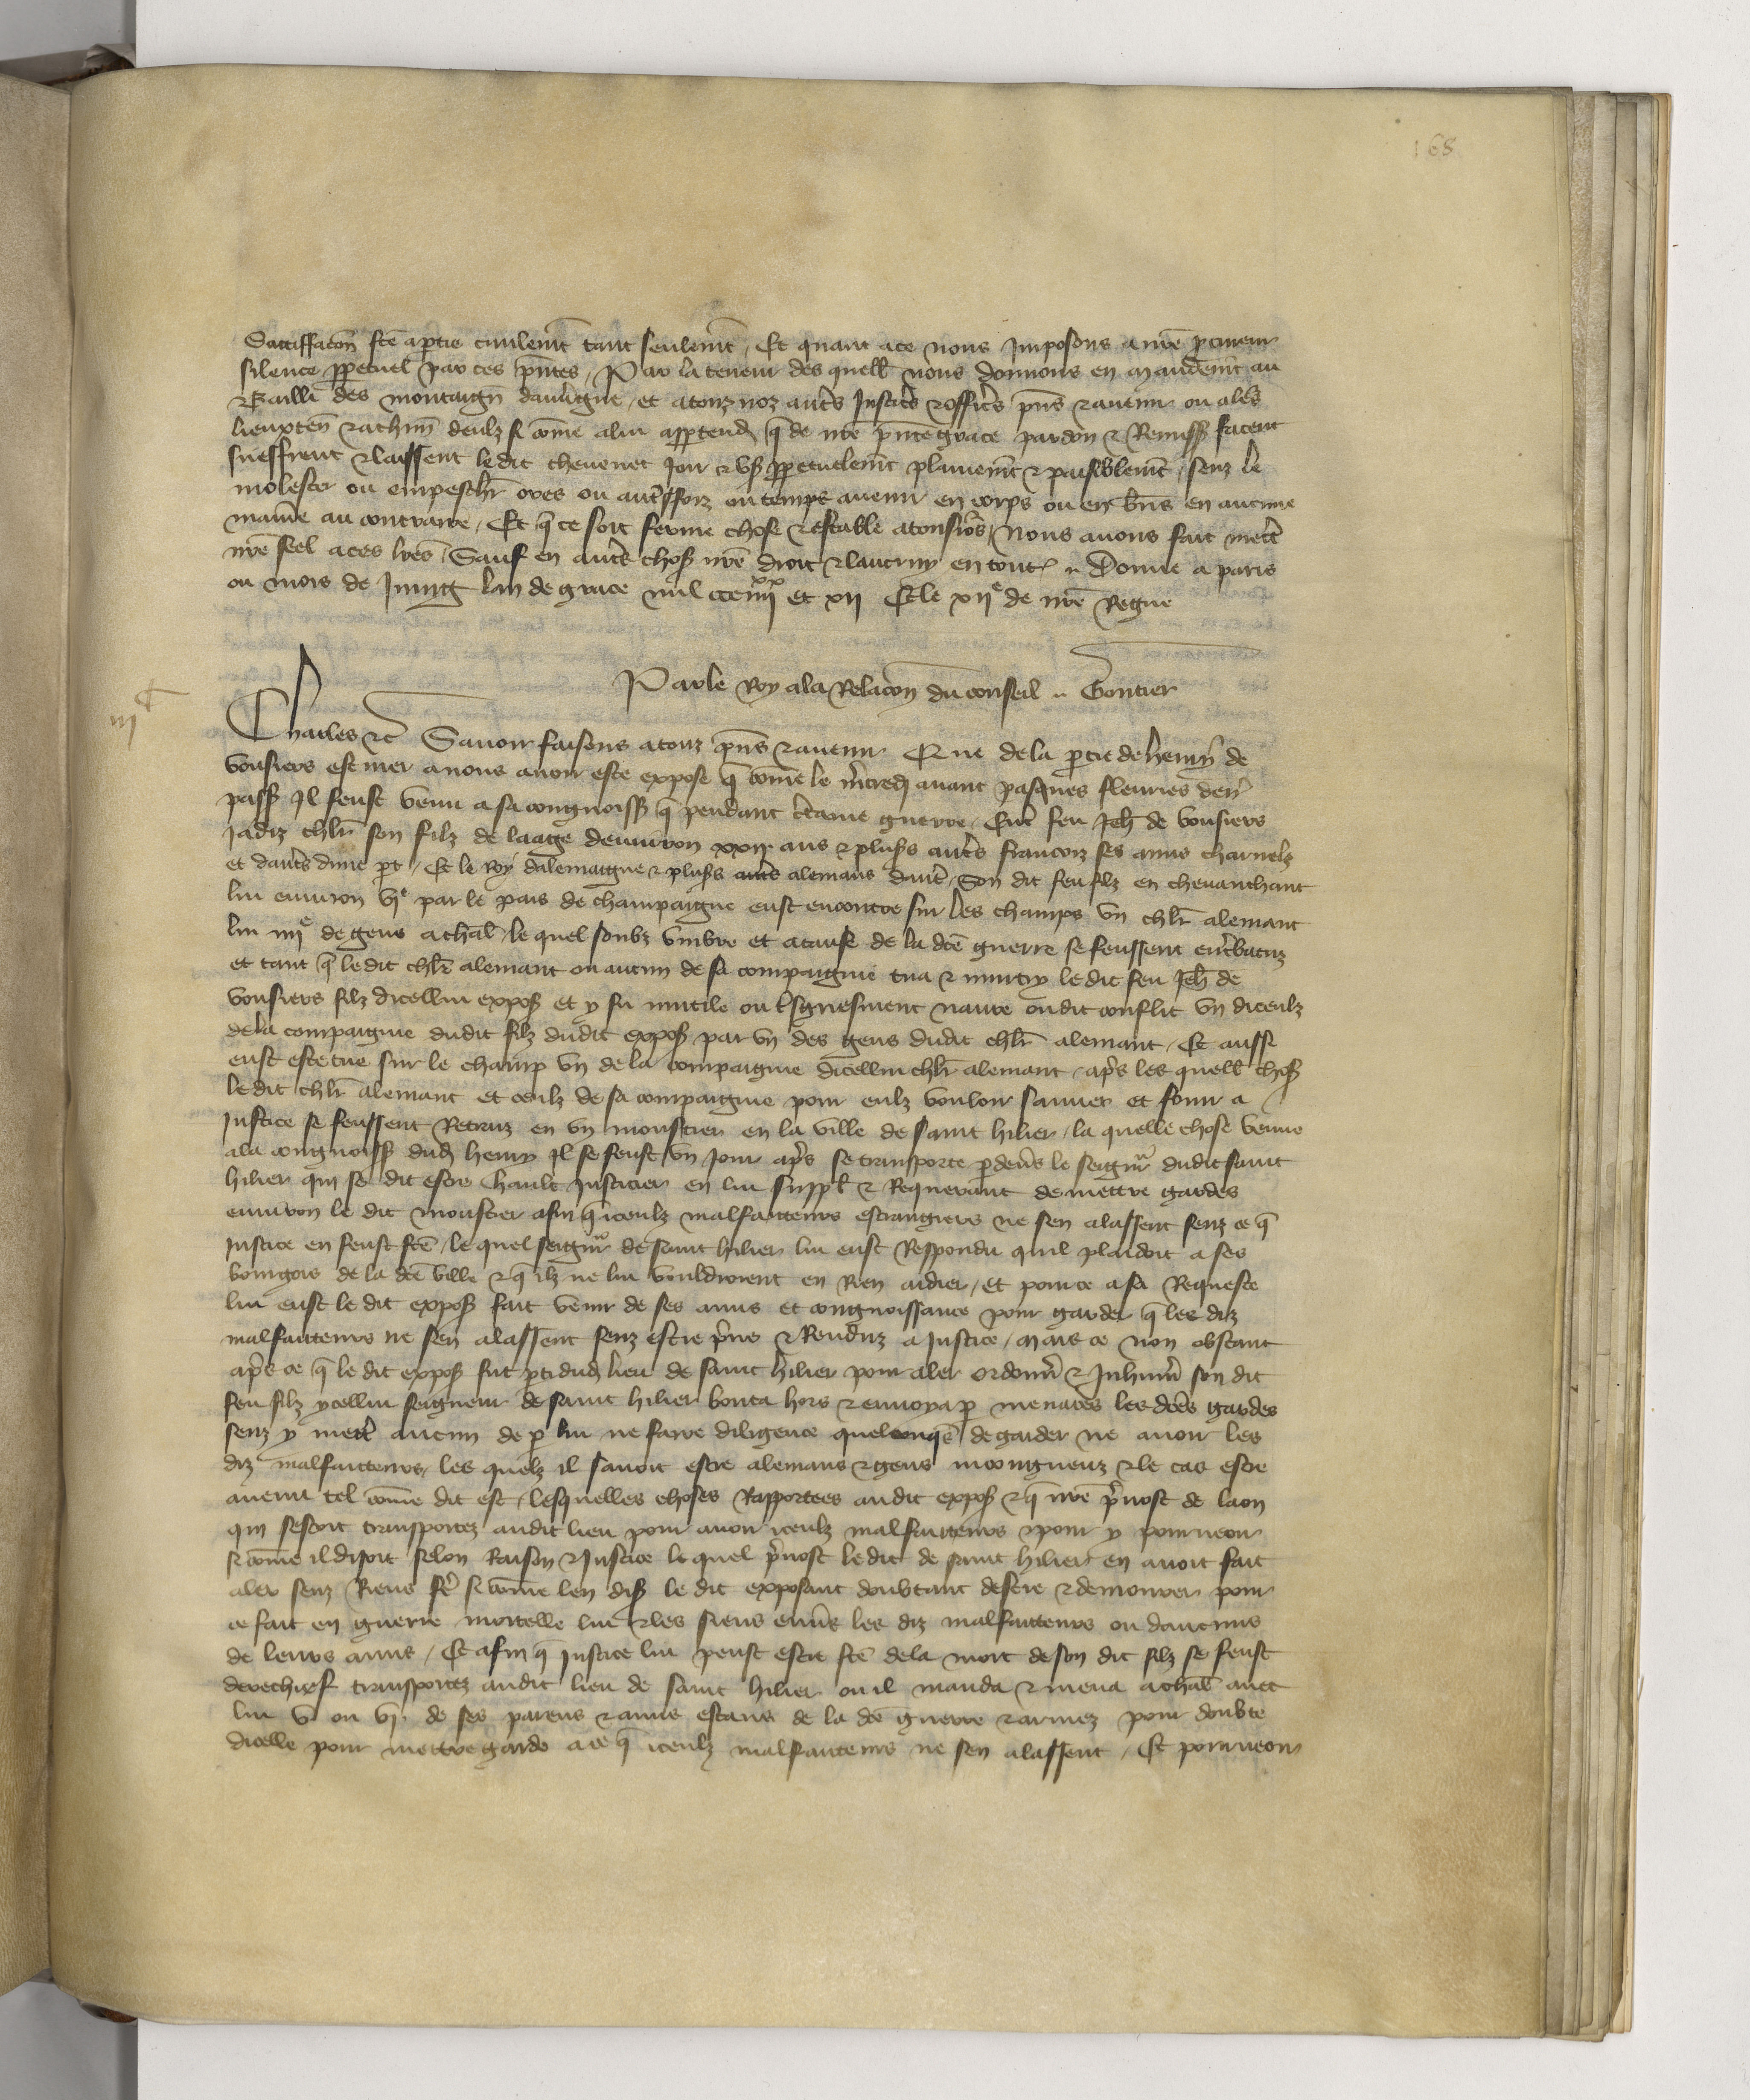 168
Satiffacõn fcẽ a ptie civilemt tant seulemt / Et quant a ce nous Imposons a nrẽ pcureur
silence ppetuel par ces pñtes / Par la teneur des quell nous donnons en mandemt au
Bailli des montaigñ dauũgne / et a touz noz autřs Justicřs & officřs pñs & avenir ou a leřs
lieuxteñ & a chuñ deulz si cõme a lui apptendr q̃ de nrẽ pñte grace pardon & Remiss facent
sueffrent & laissent le dit chevenet Joir & uſ ppetuelemt plainemt & paisiblemt / senz le
molester ou empeschr ores ou autresfoiz ou temps avenir en corps ou en bñs en aucune
maniẽ au contraire / Et q̃ ce soit ferme chose & estable a tousjřs / nous avons fait mettr̃
nrẽ seel a ces lrẽs / Sauf en autřs chos nrẽ droit & lautruy en tout / Donne a paris
ou mois de Juing lan de grace mil ccc iiii xx et xii Et le xii e de nrẽ Regne
Par le Roy a la Relacõn du conseil Gontier
iii c
Charles &c Savoir faisons a touz pñs & avenir Que de la partie de henry de
Vousiers escuier a nous avoir este expose q̃ cõme le m̃credi avant pasques fleuries deñr
pass Il feust venu a sa congnoiss q̃ pendant c̃taine guerre / Entr̃ feu Jeh de Vousiers
Jadiz chlr̃ son filz de laage denviron xxii ans & plus̃s autřs francoiz ses amis charnelz
et dautřs dune pt / Et le Roy dalemaigne & plus̃s autřs alemans dautr̃ / Son dit feu filz en chevauchant
lui environ vi e par le pais de champaigne eust encontre sur les champs un chlr̃ alemant
lui iiii e de gens a cheval / le quel soubz umbre et a cause de la dcẽ guerre se feussent entr̃batuz
et tant q̃ le dit chlr̃ alemant ou aucun de sa compaignie tua & murtry le dit feu Jeh de
Vousiers filz dicellui expos et y fu mutile ou griefment navre ou dit conflit un diceulz
de la compaignie dudit filz dudit expos par un des gens dudit chlr̃ alemant / Et aussi
eust este tue sur le champ un de la compaignie dicellui chlr̃ alemant / aprs̃ les quell chos
le dit chlr̃ alemant et ceulz de sa compaignie pour eulz vouloir sauver et fouir a
Justice se feussent Retraiz en un moustier en la ville de saint hilier / la quelle chose venue
a la congnoiss dud henry Il se feust un Jour aprs̃ se transporte p devs̃ le seignr̃ dudit saint
hilier qui se dit estre hault Justicier en lui suppl & Requerant de mettre gardes
environ le dit moustier afin q̃ iceulz malfaitteurs estrangiers ne sen alassent senz ce q̃
Justice en feust fcẽ / le quel seignr̃ de saint hilier lui eust Respondu quil plaidoit a ses
bourgois de la dcẽ ville & q̃ ilz ne lui vouldroient en Rien aidier / et pour ce a sa Requeste
lui eust le dit expos fait venir de ses amis et congnoissance pour garder q̃ les diz
malfaitteurs ne sen alassent senz estre prins & Renduz a Justice / Mais ce non obstant
aprs̃ ce q̃ le dit expos fut pti dud lieu de saint hilier pour aler ordonnr̃ & Inhumr̃ son dit
feu filz ycellui seigneur de saint hilier bouta hors & envoya p menaces les dcẽs gardes
senz y mettr̃ aucun de p lui ne faire diligence quelconqẽ de garder ne avoir les
diz malfaitteurs / les quelz il savoit estre alemans & gens incongneuz & le cas estre
avenu tel cõme dit est / lesquelles choses Rapportees audit expos & q̃ nrẽ p̃vost de laon
qui sestoit transportez audit lieu pour avoir iceulz malfaitteurs & pour y pourveoir
si cõme il disoit selon Raison & Justice le quel p̃vost le dit de saint hilier en avoit fait
aler senz Riens fẽr si cõme len dis le dit exposant doubtant destre & demourer pour
ce fait en guerre mortelle lui & les siens envs̃ les diz malfaitteurs ou daucuns
de leurs amis / Et afin q̃ Justice lui peust estre fcẽ de la mort de son dit filz se feust
derechief transportez audit lieu de saint hilier ou il manda & mena a cheval avec
lui v ou vi de ses parens & amis estans de la dcẽ guerre & armez pour doubte
dicelle pour mettre garde a ce q̃ iceulz malfaitteurs ne sen alassent / Et pourveoir